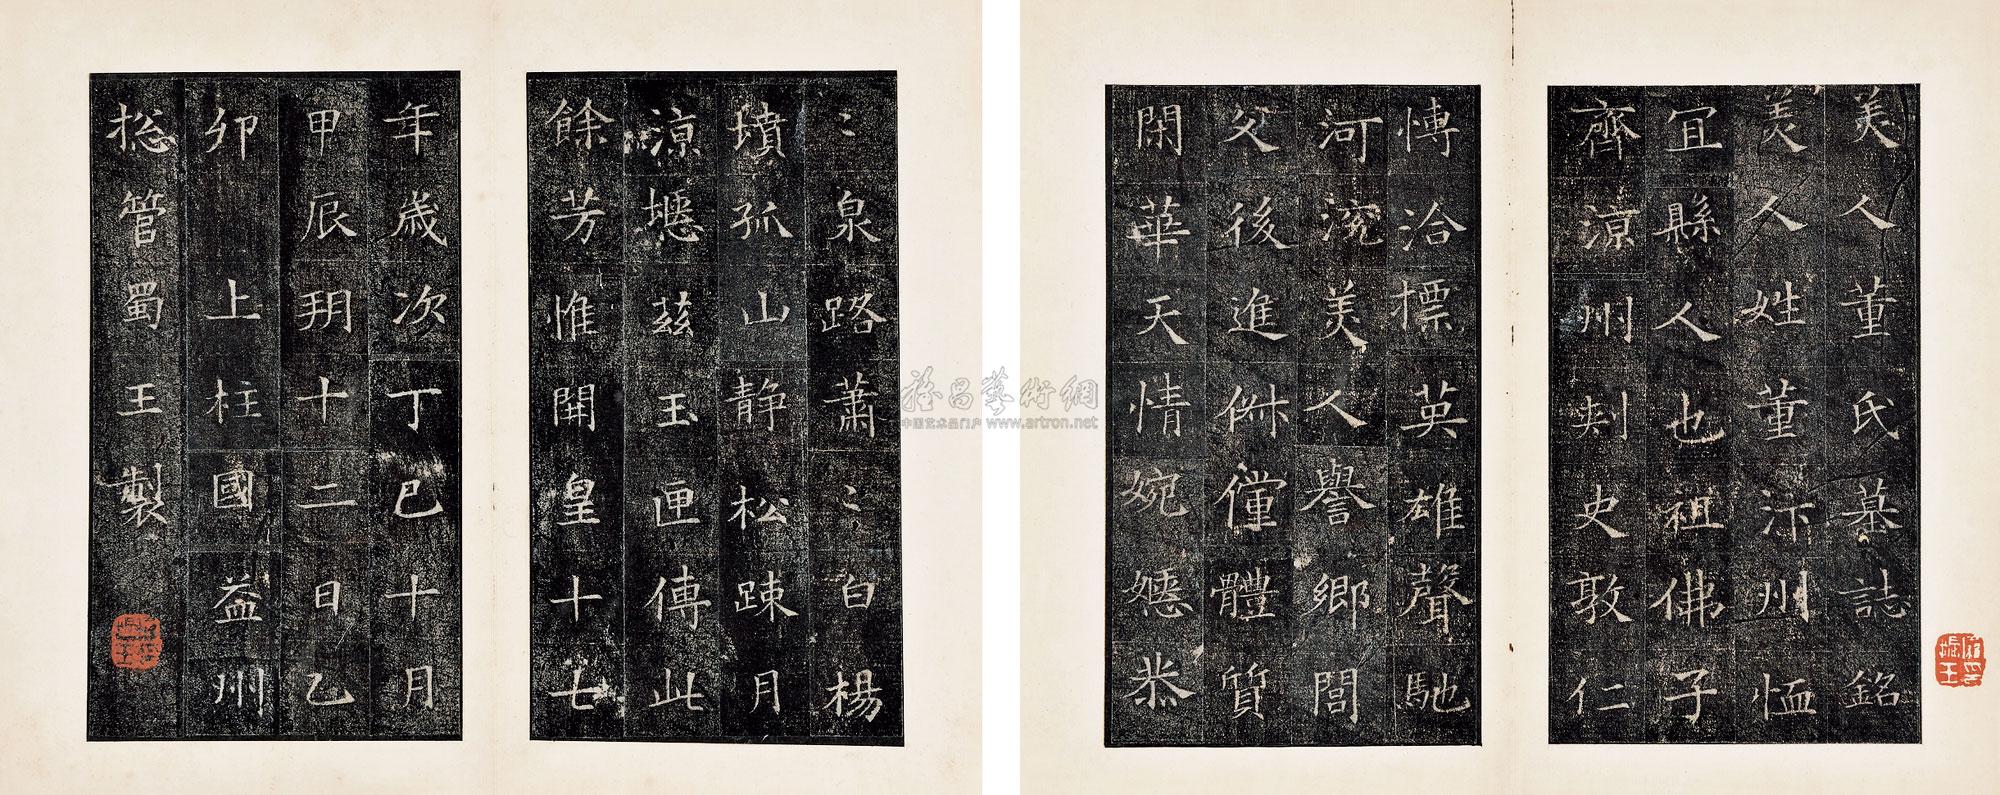 美人董氏墓誌銘
美人姓董汴州恤
宜縣人也祖佛子
齊涼州刺史敦仁
愽洽標英雄聲馳
河沇美人譽鄉閭
父後進俶儻體質
閑華天情婉嫕恭
〻泉路蕭〻白楊
墳孤山静松踈月
涼壥茲玉匣傳此
餘芳惟開皇十七
年歲次丁巳十月
甲辰朔十二日乙
卯上柱國益州
揔管蜀王製
雅昌藝術網
中国艺术品门户 www.artron.net